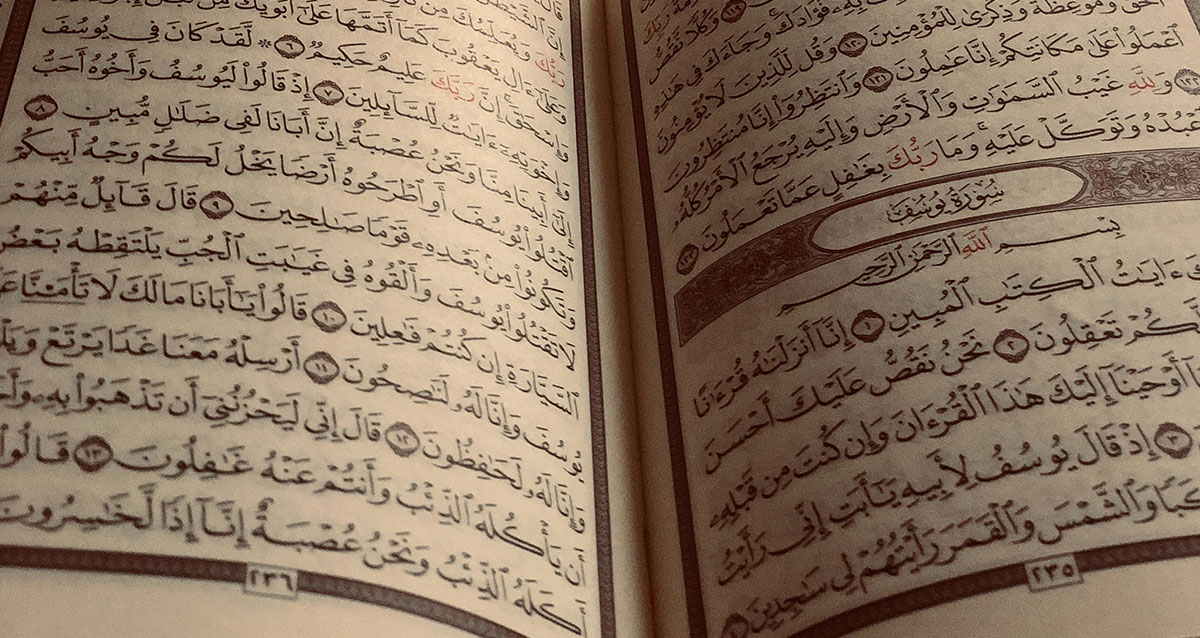 رَبِّكَ
١١٩ وَكُلًّا نَّقُصُّ
بِهِۦ فُؤَادَكَ وَجَآءَكَ فِي هَٰذِهِ
ٱلۡحَقُّ وَمَوۡعِظَةٞ وَذِكۡرَىٰ لِلۡمُؤۡمِنِينَ ١٢٠ وَقُل لِّلَّذِينَ لَا يُؤۡمِنُونَ
ٱعۡمَلُواْ عَلَىٰ مَكَانَتِكُمۡ إِنَّا عَٰمِلُونَ ١٢١ وَٱنتَظِرُوٓاْ إِنَّا مُنتَظِرُونَ
١٢٢ وَلِلَّهِ غَيۡبُ ٱلسَّمَٰوَٰتِ وَٱلۡأَرۡضِ وَإِلَيۡهِ يُرۡجَعُ ٱلۡأَمۡرُ كُلُّهُۥ
عۡبُدۡهُ وَتَوَكَّلۡ عَلَيۡهِۚ وَمَا رَبُّكَ بِغَٰفِلٍ عَمَّا تَعۡمَلُونَ ١٢٣
سُورَةُ يُوسُفَ
بِسۡمِ ٱللَّهِ ٱلرَّحۡمَٰنِ ٱلرَّحِيمِ
ءَايَٰتُ ٱلۡكِتَٰبِ ٱلۡمُبِينِ ١ إِنَّآ أَنزَلۡنَٰهُ قُرۡءَٰنًا
كُمۡ تَعۡقِلُونَ ٢ نَحۡنُ نَقُصُّ عَلَيۡكَ أَحۡسَنَ
أَوۡحَيۡنَآ إِلَيۡكَ هَٰذَا ٱلۡقُرۡءَانَ وَإِن كُنتَ مِن قَبۡلِهِۦ
٣ إِذۡ قَالَ يُوسُفُ لِأَبِيهِ يَٰٓأَبَتِ إِنِّي رَأَيۡتُ
كَبٗا وَٱلشَّمۡسَ وَٱلۡقَمَرَ رَأَيۡتُهُمۡ لِي سَٰجِدِينَ ٤
٢٣٥
إِنَّ ٱلشَّيۡطَٰنَ
رَبُّكَ وَيُعَلِّمُكَ مِن تَأۡوِيلِ
وَعَلَىٰٓ ءَالِ يَعۡقُوبَ كَمَآ أَتَمَّهَا عَلَىٰٓ أَبَوَيۡكَ مِن قَبۡلُ
وَإِسۡحَٰقَۚ إِنَّ رَبَّكَ عَلِيمٌ حَكِيمٞ ٦ ۞ لَّقَدۡ كَانَ فِي يُوسُفَ
وَإِخۡوَتِهِۦٓ ءَايَٰتٞ لِّلسَّآئِلِينَ ٧ إِذۡ قَالُواْ لَيُوسُفُ وَأَخُوهُ أَحَبُّ
إِلَىٰٓ أَبِينَا مِنَّا وَنَحۡنُ عُصۡبَةٌ إِنَّ أَبَانَا لَفِي ضَلَٰلٖ مُّبِينٍ ٨
ٱقۡتُلُواْ يُوسُفَ أَوِ ٱطۡرَحُوهُ أَرۡضٗا يَخۡلُ لَكُمۡ وَجۡهُ أَبِيكُمۡ
وَتَكُونُواْ مِنۢ بَعۡدِهِۦ قَوۡمٗا صَٰلِحِينَ ٩ قَالَ قَآئِلٞ مِّنۡهُمۡ
لَا تَقۡتُلُواْ يُوسُفَ وَأَلۡقُوهُ فِي غَيَٰبَتِ ٱلۡجُبِّ يَلۡتَقِطۡهُ بَعۡضُ
ٱلسَّيَّارَةِ إِن كُنتُمۡ فَٰعِلِينَ ١٠ قَالُواْ يَٰٓأَبَانَا مَالَكَ لَا تَأۡمَ۬نَّا عَ
يُوسُفَ وَإِنَّا لَهُۥ لَنَٰصِحُونَ ١١ أَرۡسِلۡهُ مَعَنَا غَدٗا يَرۡتَعۡ وَيَلۡ
وَإِنَّا لَهُۥ لَحَٰفِظُونَ ١٢ قَالَ إِنِّي لَيَحۡزُنُنِيٓ أَن تَذۡهَبُواْ بِهِۦ وَأَخَ
أَن يَأۡكُلَهُ ٱلذِّئۡبُ وَأَنتُمۡ عَنۡهُ غَٰفِلُونَ ١٣ قَالُواْ
أَكَلَهُ ٱلذِّئۡبُ وَنَحۡنُ عُصۡبَةٌ إِنَّآ إِذٗا لَّخَٰسِرُونَ
٢٣٦